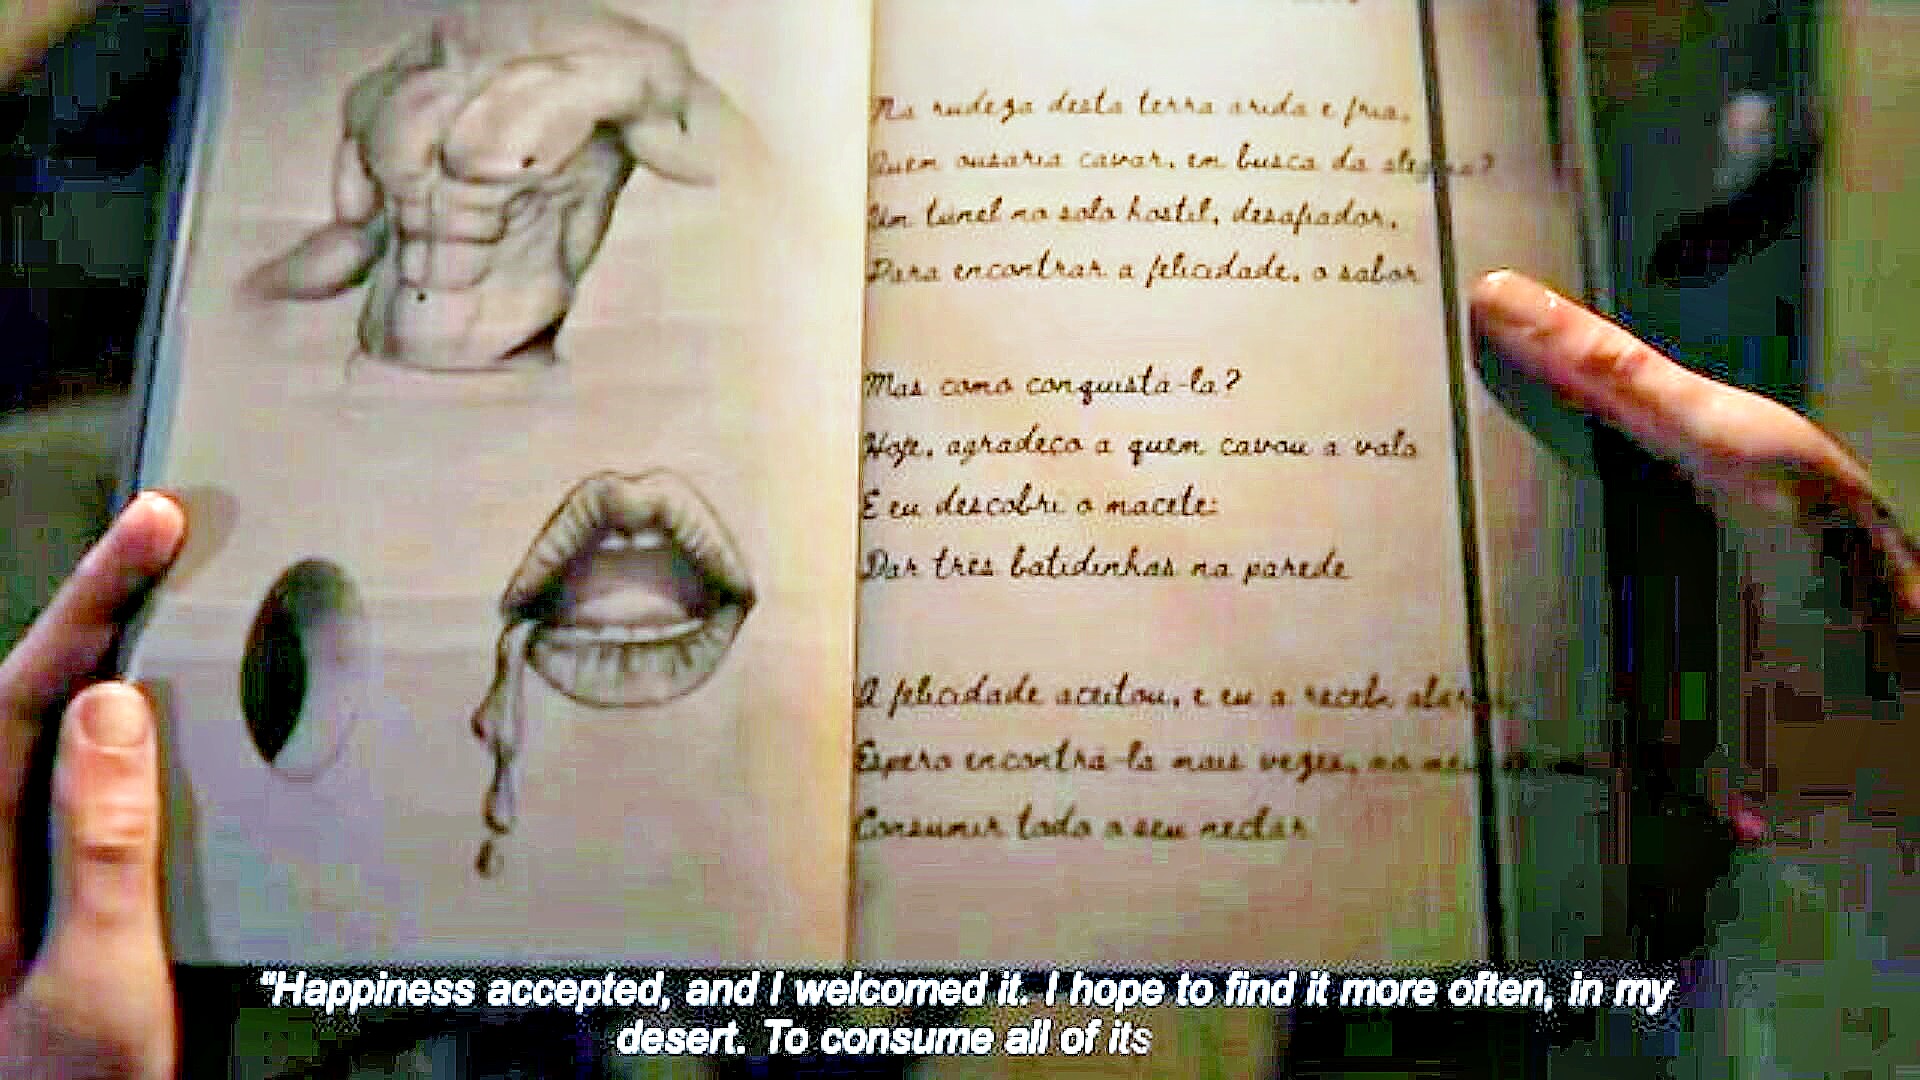 Na rudeza desta terra arida e fria,
Quem ousaria cavar, em busca da
Um túnel no solo hostil, desafiador,
Para encontrar a felicidade, o sabor
Mas como conquistá-la?
Hoje, agradeço a quem cavou a vala
E eu descobri o macete:
Dar três batidinhas na parede
A felicidade aceitou, e eu a recebi
Espero encontrá-la mais vezes, no
Consumir todo o seu nectar
“Happiness accepted, and I welcomed it. I hope to find it more often, in my
desert. To consume all of its